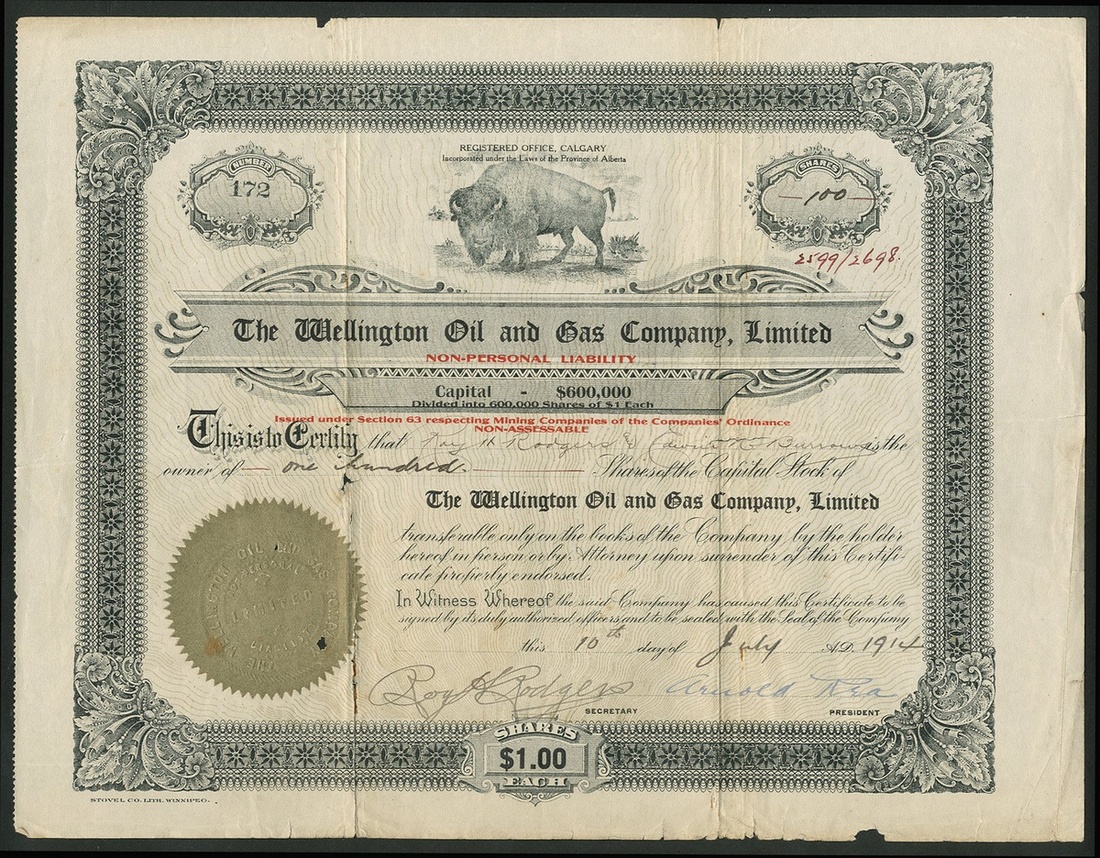 REGISTERED OFFICE, CALGARY
Incorporated under the Laws of the Province of Alberta
NUMBER
172
SHARES
100
2599/2698.
The Wellington Oil and Gas Company, Limited
NON-PERSONAL LIABILITY
Capital - $600,000
Divided into 600,000 Shares of $1 Each
Issued under Section 63 respecting Mining Companies of the Companies' Ordinance
NON-ASSESSABLE
This is to Certify that Roy H Rodgers & Burrows is the
owner of one hundred. Shares of the Capital Stock of
The Wellington Oil and Gas Company, Limited
transferable only on the books of the Company by the holder
hereof in person or by Attorney upon surrender of this Certifi-
cate properly endorsed.
In Witness Whereof the said Company has caused this Certificate to be
signed by its duly authorized officers and to be sealed with the Seal of the Company
this 10th day of July A.D. 1914
Roy H Rodgers Arnold Rea
SECRETARY PRESIDENT
THE WELLINGTON OIL AND GAS COMPANY
LIMITED
SHARES
$1.00
EACH
STOVEL CO. LITH. WINNIPEG.